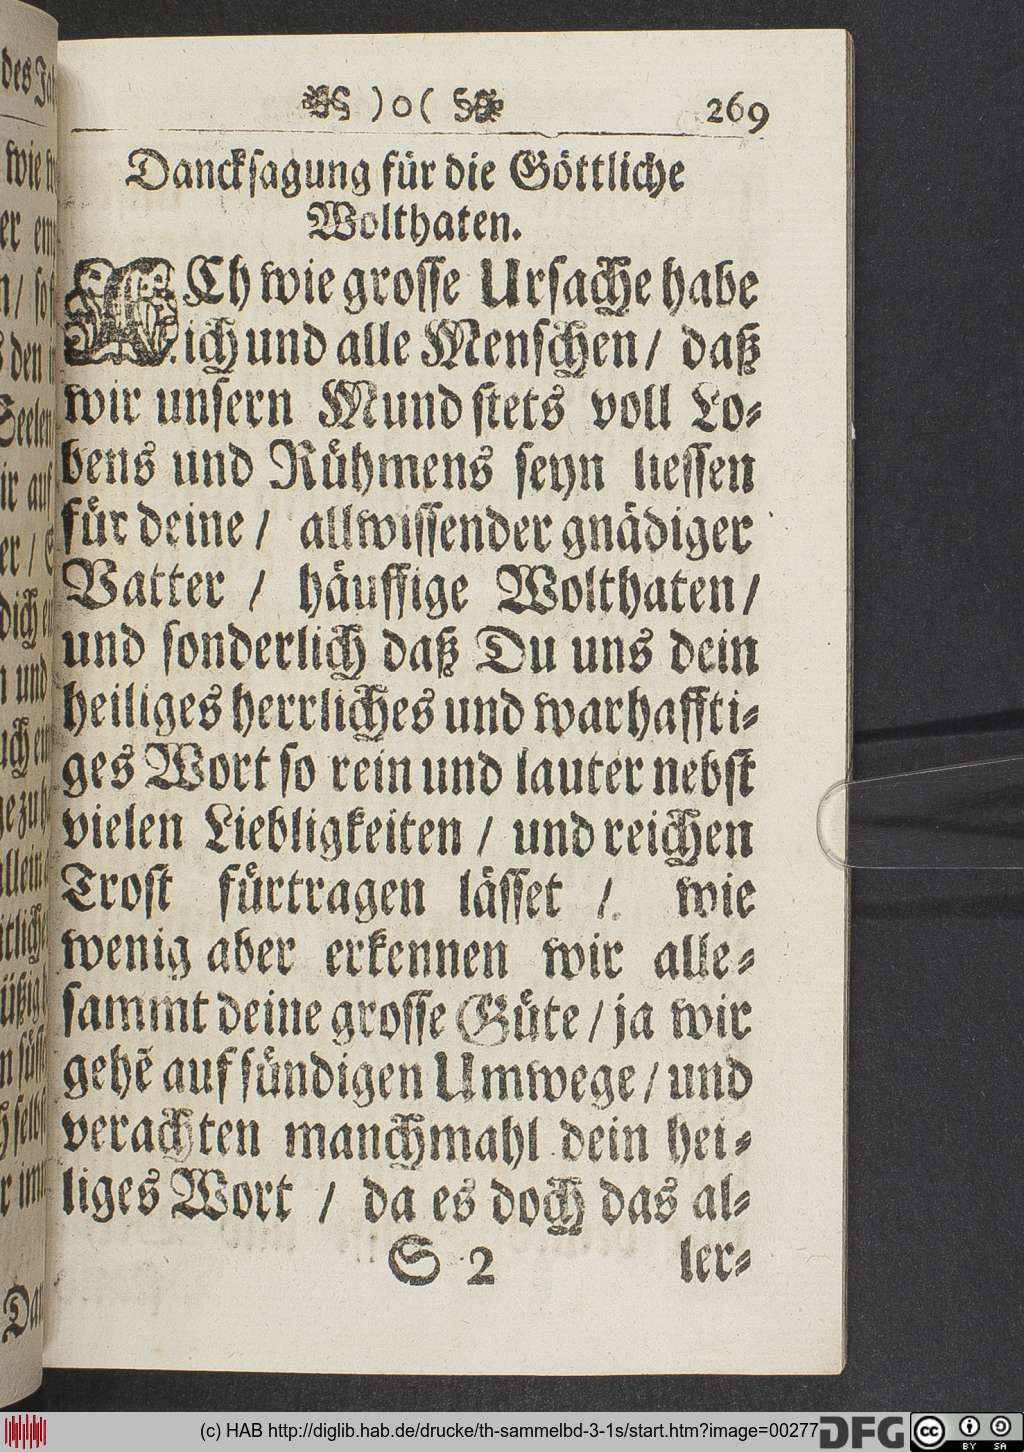 )o( 269
Danckſagung für die Göttliche
Wolthaten.
ACh wie groſſe Urſache habe
ich und alle Menſchen/ daß
wir unſern Mund ſtets voll Lo⸗
bens und Rühmens ſeyn lieſſen
für deine / allwiſſender gnädiger
Vatter / häuffige Wolthaten/
und ſonderlich daß Du uns dein
heiliges herrliches und warhaffti⸗
ges Wort ſo rein und lauter nebſt
vielen Liebligkeiten / und reichen
Troſt fürtragen läſſet / wie
wenig aber erkennen wir alle⸗
ſammt deine groſſe Güte / ja wir
gehē auf ſündigen Umwege / und
verachten manchmahl dein hei⸗
liges Wort / da es doch das al⸗
S 2 ler⸗
(c) HAB http://diglib.hab.de/drucke/th-sammelbd-3-1s/start.htm?image=00277
DFG
cc BY SA